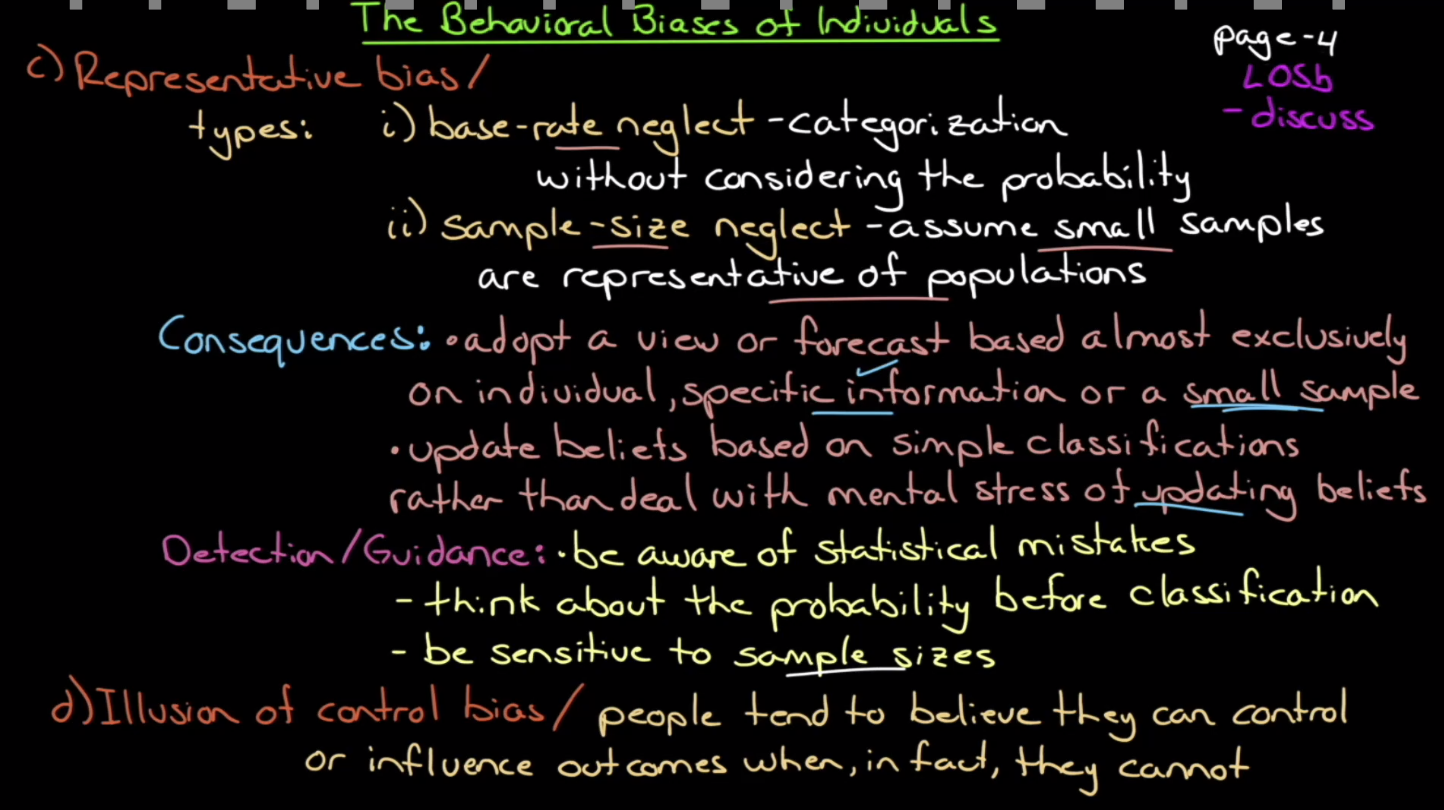 The Behavioral Biases of Individuals
page-4
LOSb
- discuss
c) Representative bias/
types: i) base-rate neglect - categorization
without considering the probability
ii) sample-size neglect - assume small samples
are representative of populations
Consequences: • adopt a view or forecast based almost exclusively
on individual, specific information or a small sample
• update beliefs based on simple classifications
rather than deal with mental stress of updating beliefs
Detection/Guidance: • be aware of statistical mistakes
- think about the probability before classification
- be sensitive to sample sizes
d) Illusion of control bias/ people tend to believe they can control
or influence outcomes when, in fact, they cannot